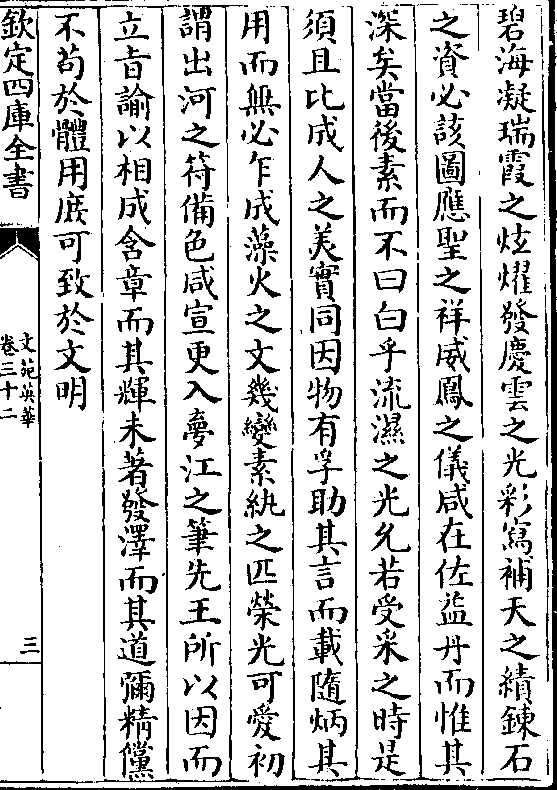 碧海凝瑞霞之炫燿發慶雲之光彩寫補天之績鍊石
之資必該圖應聖之祥威鳳之儀咸在佐益丹而惟其
深矣當後素而不曰白乎流濕之光允若受采之時是
須且比成人之美實同因物有孚助其言而載隨炳其
用而無必乍成藻火之文幾變素紈之匹榮光可愛初
謂出河之符備色咸宣更入夢江之筆先王所以因而
立旨諭以相成含章而其輝未著發澤而其道彌精儻
不茍於體用庶可致於文明
欽定四庫全書
文苑英華
卷三十二
三